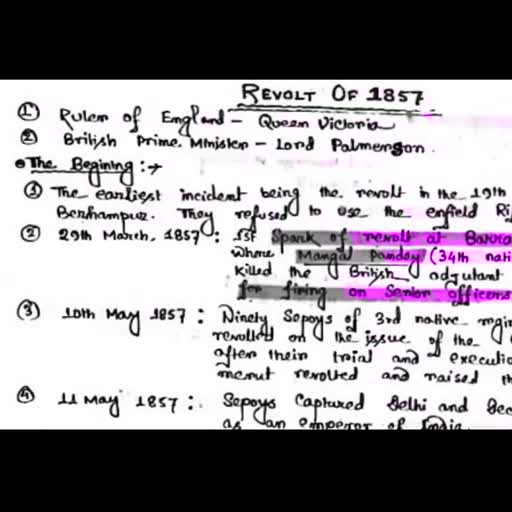 REVOLT OF 1857
① Ruler of England - Queen Victoria
② British Prime Minister - Lord Palmerson.
The Begining :→
① The earliest incident being the revolt in the 19th
Berhampur. They refused to use the enfield Ri
② 29th March, 1857 : 1st Spark of revolt at Barra
where Mangal Panday (34th nati
killed the British adjutant
for firing on Senior Officers
③ 10th May 1857 : Ninety Sepoys of 3rd native regi
revolted on the issue of the
after their trial and executio
merut revolted and raised th
④ 11 May 1857 : Sepoys captured Delhi and
as an emperor of India